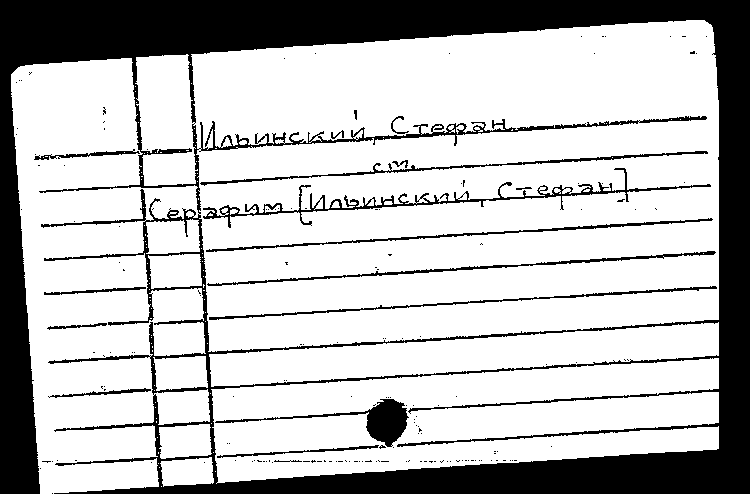 Ильинский, Стефан
ст.
Серафим [Ильинский, Стефан]